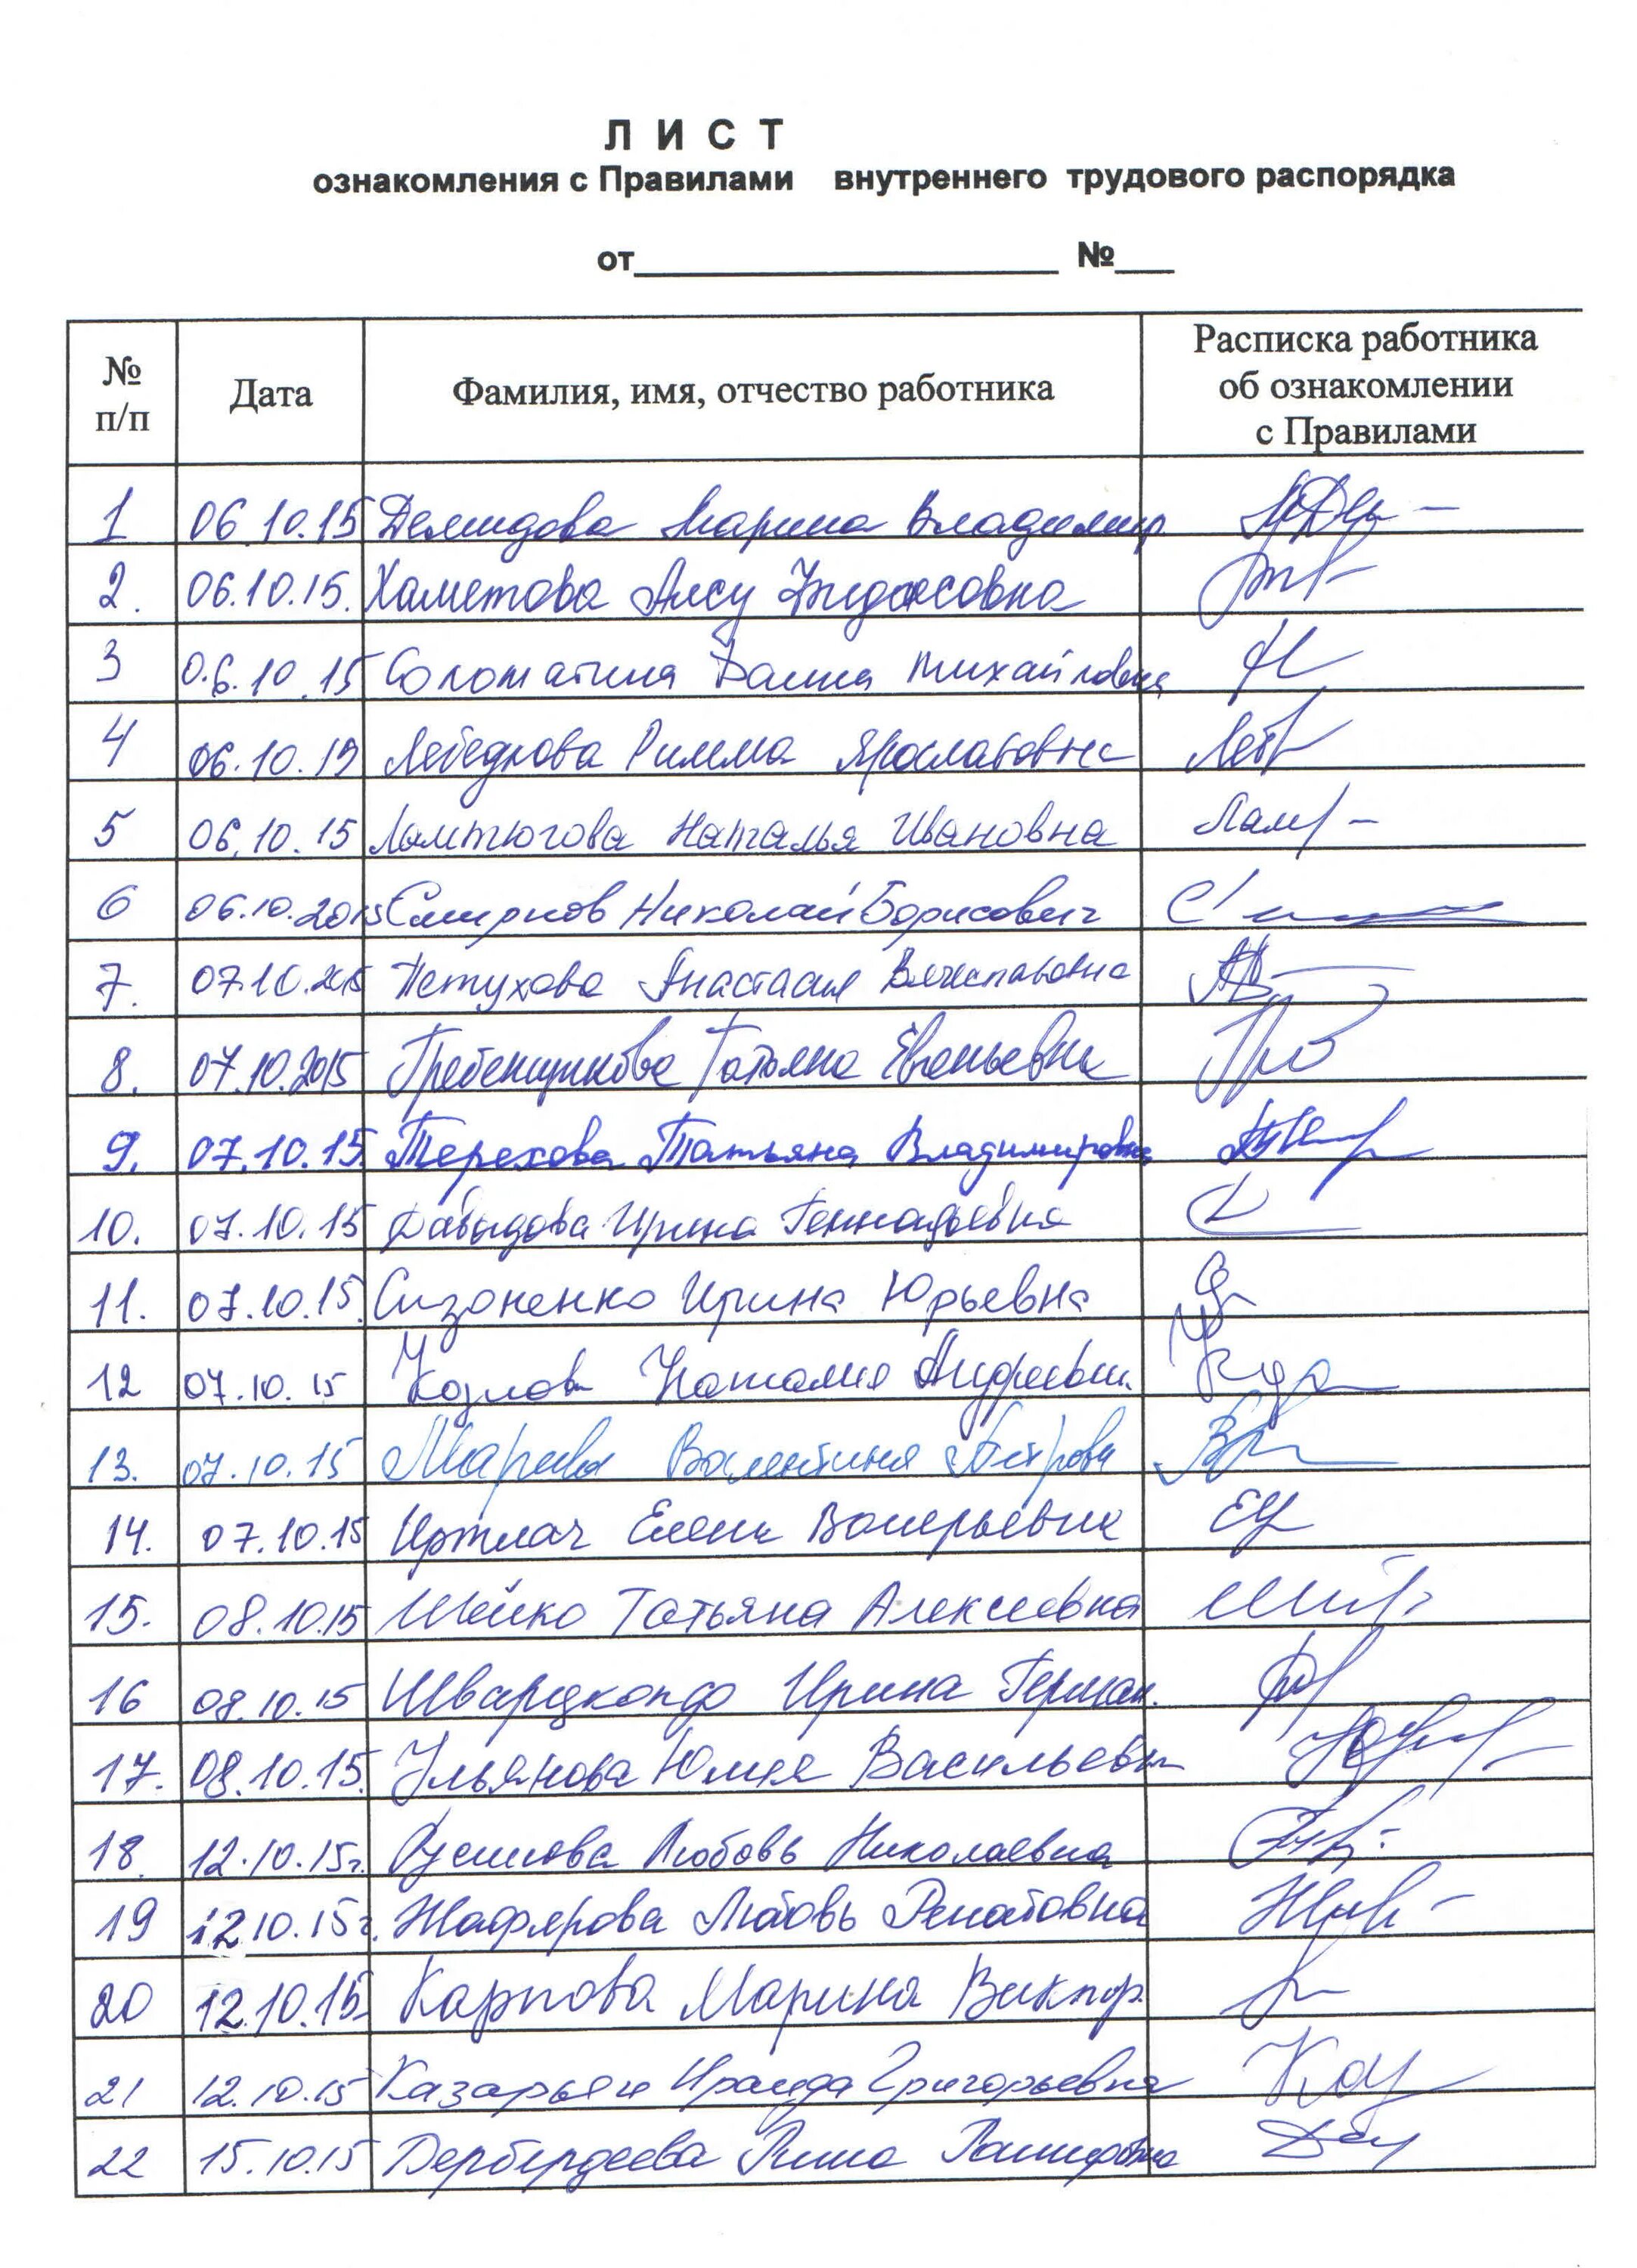 Л И С Т
ознакомления с Правилами внутреннего трудового распорядка
от №
№ п/п Дата Фамилия, имя, отчество работника Расписка работника об ознакомлении с Правилами
1 06.10.15 Демидова Марина Владимир.
2. 06.10.15. Хаметова Алсу
3 06.10.15 Соломатина Галина Михайловна
4 06.10.15 Лебедкова Римма Ярославовна
5 06.10.15 Ломтюгова Наталья Ивановна Лам
6 06.10.2015 Смирнов Николай Борисович
7. 07.10.2015 Петухова Анастасия Вячеславовна
8. 07.10.2015 Гребенщикова Татьяна Евгеньевна
9. 07.10.15. Терехова Татьяна Владимировна
10. 07.10.15 Давыдова Ирина Геннадьевна
11. 07.10.15. Сизоненко Ирина Юрьевна
12 07.10.15 Козлова Наталия Андреевн.
13. 07.10.15 Валентина Петровн
14. 07.10.15 Иртлач Елена Валерьевна
15. 08.10.15 Шейко Татьяна Алексеевна
16 08.10.15 Шварцкопф Ирина Герман.
17. 08.10.15. Ульянова Юлия Васильевн
18. 12.10.15г. Любовь Николаевна
19 12.10.15г. Жафярова Любовь Ренатовна
20 12.10.15 Карпова Марина Виктор.
21 12.10.15 Казарьян Ираида Григорьевна
22 15.10.15 Дербердеева Рашидовна